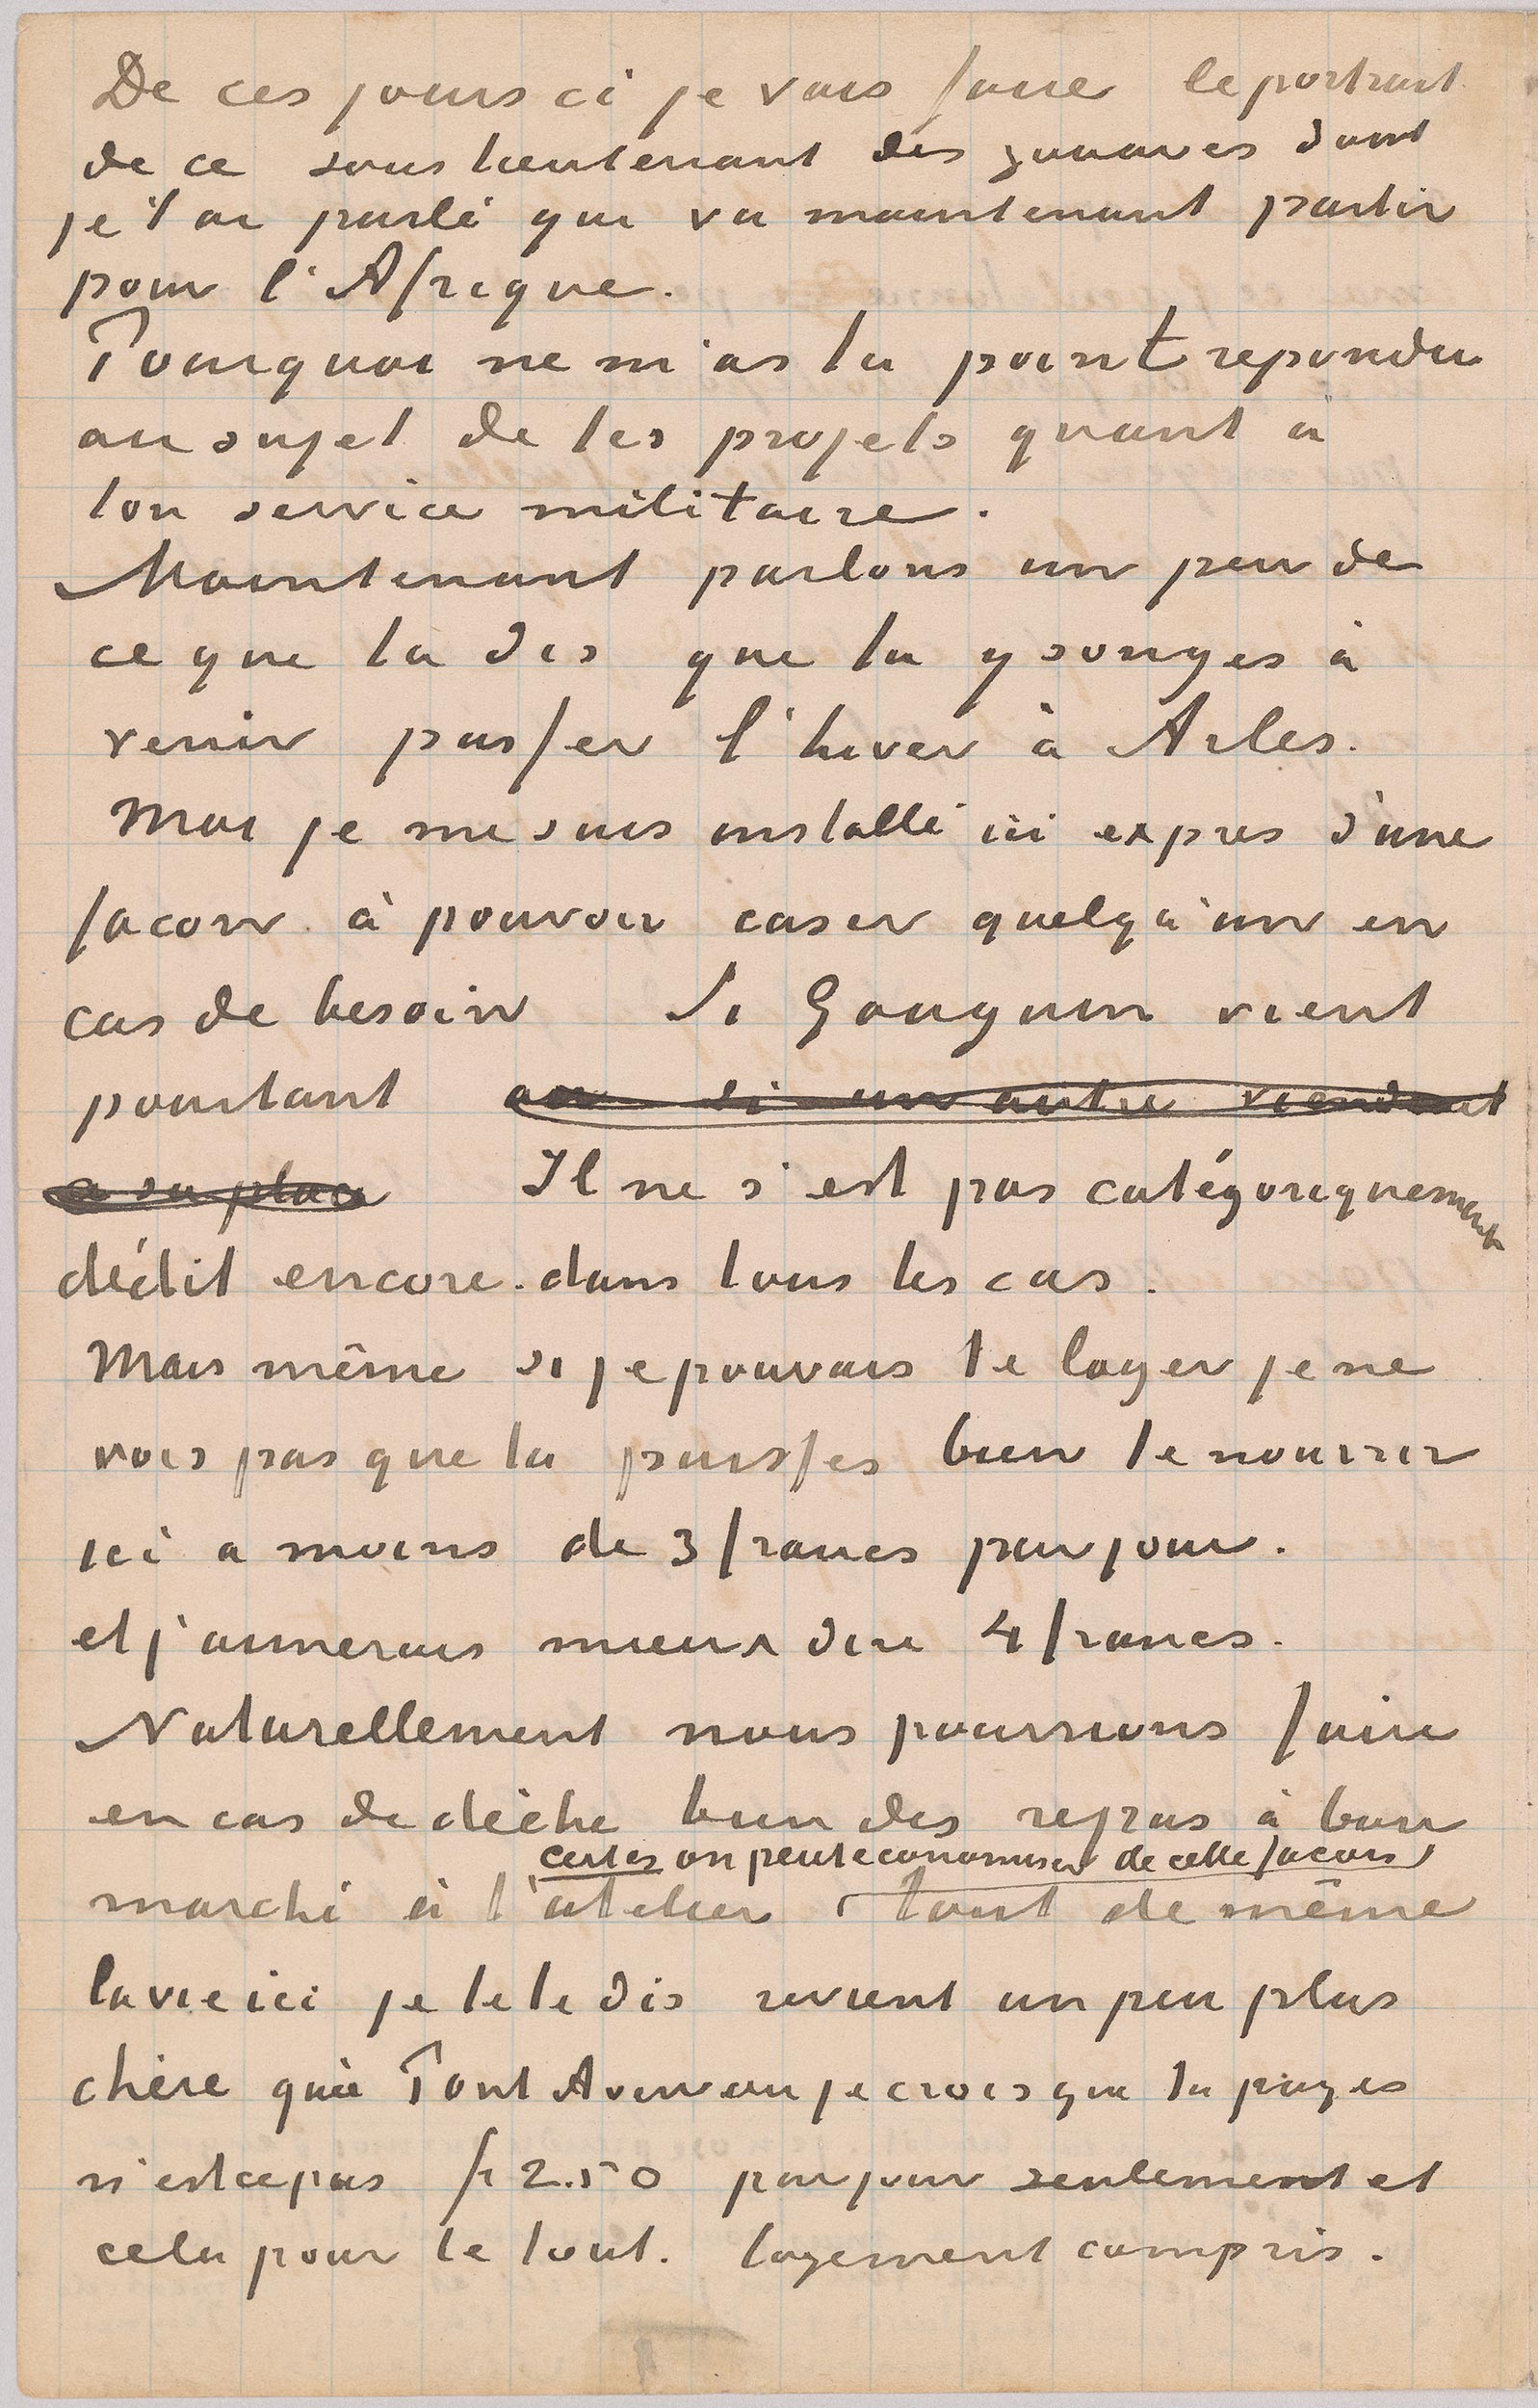 De ces jours ci je vais faire le portrait
de ce sous lieutenant des zouaves dont
je t'ai parlé qui va maintenant partir
pour l'Afrique.
Pourquoi ne m'as tu point repondu
au sujet de tes projets quant à
ton service militaire.
Maintenant parlons un peu de
ce que tu dis que tu y songes à
venir passer l'hiver à Arles.
Moi je me suis installé ici expres d'une
facon à pouvoir caser quelqu'un en
cas de besoin Si Gauguin vient
pourtant ou si un autre viendrait
a sa place Il ne s'est pas catégoriquement
dédit encore. dans tous les cas.
Mais même si je pouvais te loger je ne
vois pas que tu puisses bien te nourrir
ici a moins de 3 francs par jour.
et j'aimerais mieux dire 4 francs.
Naturellement nous pourrions faire
en cas de dèche bien des repas à bon
certes on peut economiser de cette facon)
marché à l'atelier tout de même
la vie ici je te le dis revient un peu plus
chère qu'à Pont Aven ou je crois que tu payes
n'est ce pas fr 2.50 par jour seulement et
cela pour le tout. logement compris.